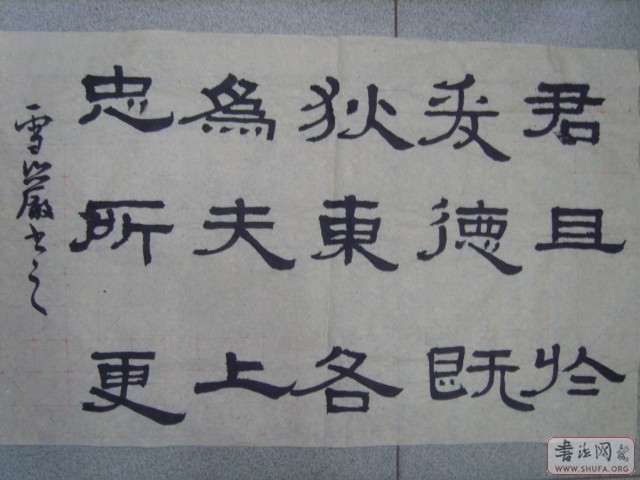 君且於
爰德既
狄東各
爲夫上
忠所更
雪巖書之
書法网
WWW.SHUFA.ORG